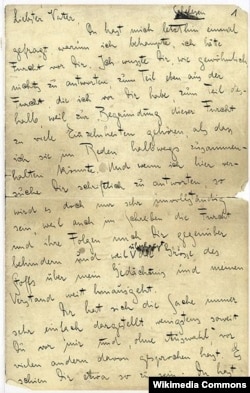 Schelesen
1
Liebster Vater,
Du hast mich letzthin einmal
gefragt warum ich behaupte, ich hätte
Furcht vor Dir. Ich wusste Dir, wie gewöhnlich
nichts zu antworten, zum Teil eben aus der
Furcht die ich vor Dir habe, zum Teil des-
halb weil zur Begründung dieser Furcht
zu viele Einzelheiten gehören als dass
ich sie im Reden halbwegs zusammen-
halten könnte. Und wenn ich hier ver-
suche Dir schriftlich zu antworten, so
wird es doch nur sehr unvollständig
sein, weil auch im Schreiben die Furcht
und ihre Folgen mich Dir gegenüber
behindern und weil die Grösse des
Stoffs über mein Gedächtnis und meinen
Verstand weit hinausgeht.
Dir hat sich die Sache immer
sehr einfach dargestellt, wenigstens soweit
Du vor mir und, ohne Auswahl, vor
vielen andern davon gesprochen hast. Es
schien Dir etwa so zu sein: Du hast
Wikimedia Commons